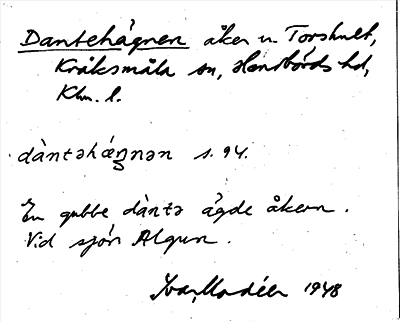 Dantehägnen åker u. Torshult,
Kråksmåla sn, Handbörds hd,
Klm. l.
dàntəhäŋnən s. 94.
En gubbe dàntə ägde åkern.
Vid sjön Algun.
Ivar Modéer 1948